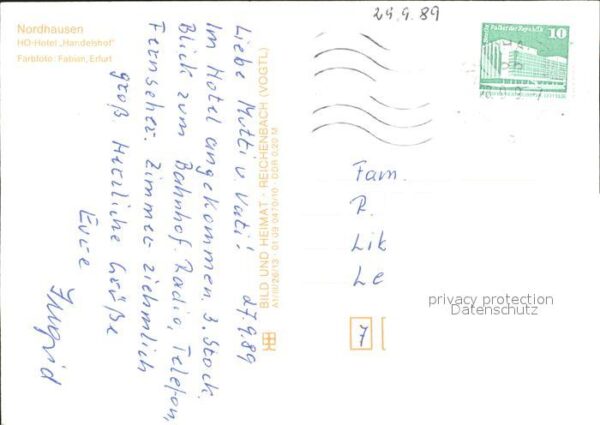 Nordhausen
HO-Hotel „Handelshof"
Farbfoto: Fabian, Erfurt
29.9.89
Palast der Republik
10
Liebe Mutti u. Vati! 27.9.89
Im Hotel angekommen. 3. Stock
Blick zum Bahnhof. Radio, Telefon,
Fernseher. Zimmer ziehmlich
groß. Herzliche Grüße
Eure
Ingrid
BILD UND HEIMAT · REICHENBACH (VOGTL)
A1/III/26/13 · 01 09 0470/10 · DDR 0,20 M
Fam.
Lik
Le
7
privacy protection
Datenschutz